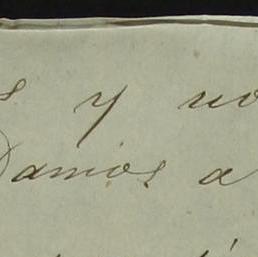 s y no
Damos a